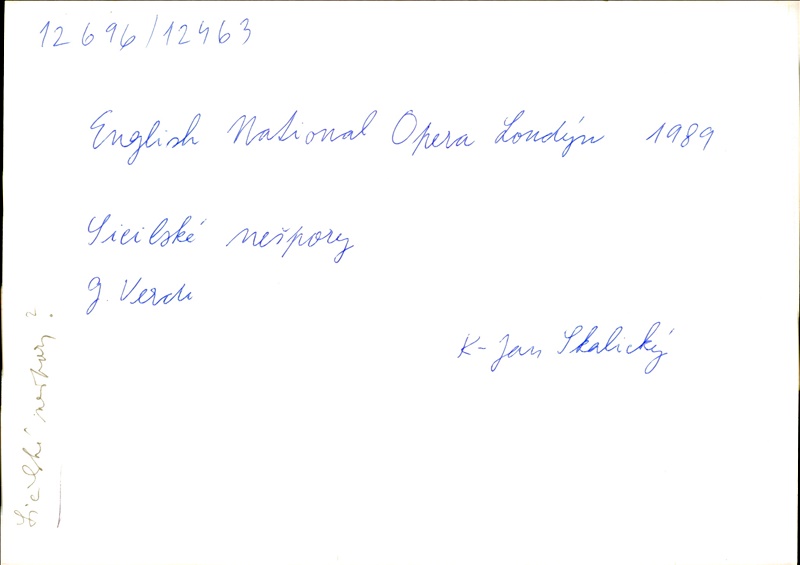 12696/12463
English National Opera Londýn 1989
Sicilské nešpory
G. Verdi
K-Jan Skalický
Sicilské nešpory?